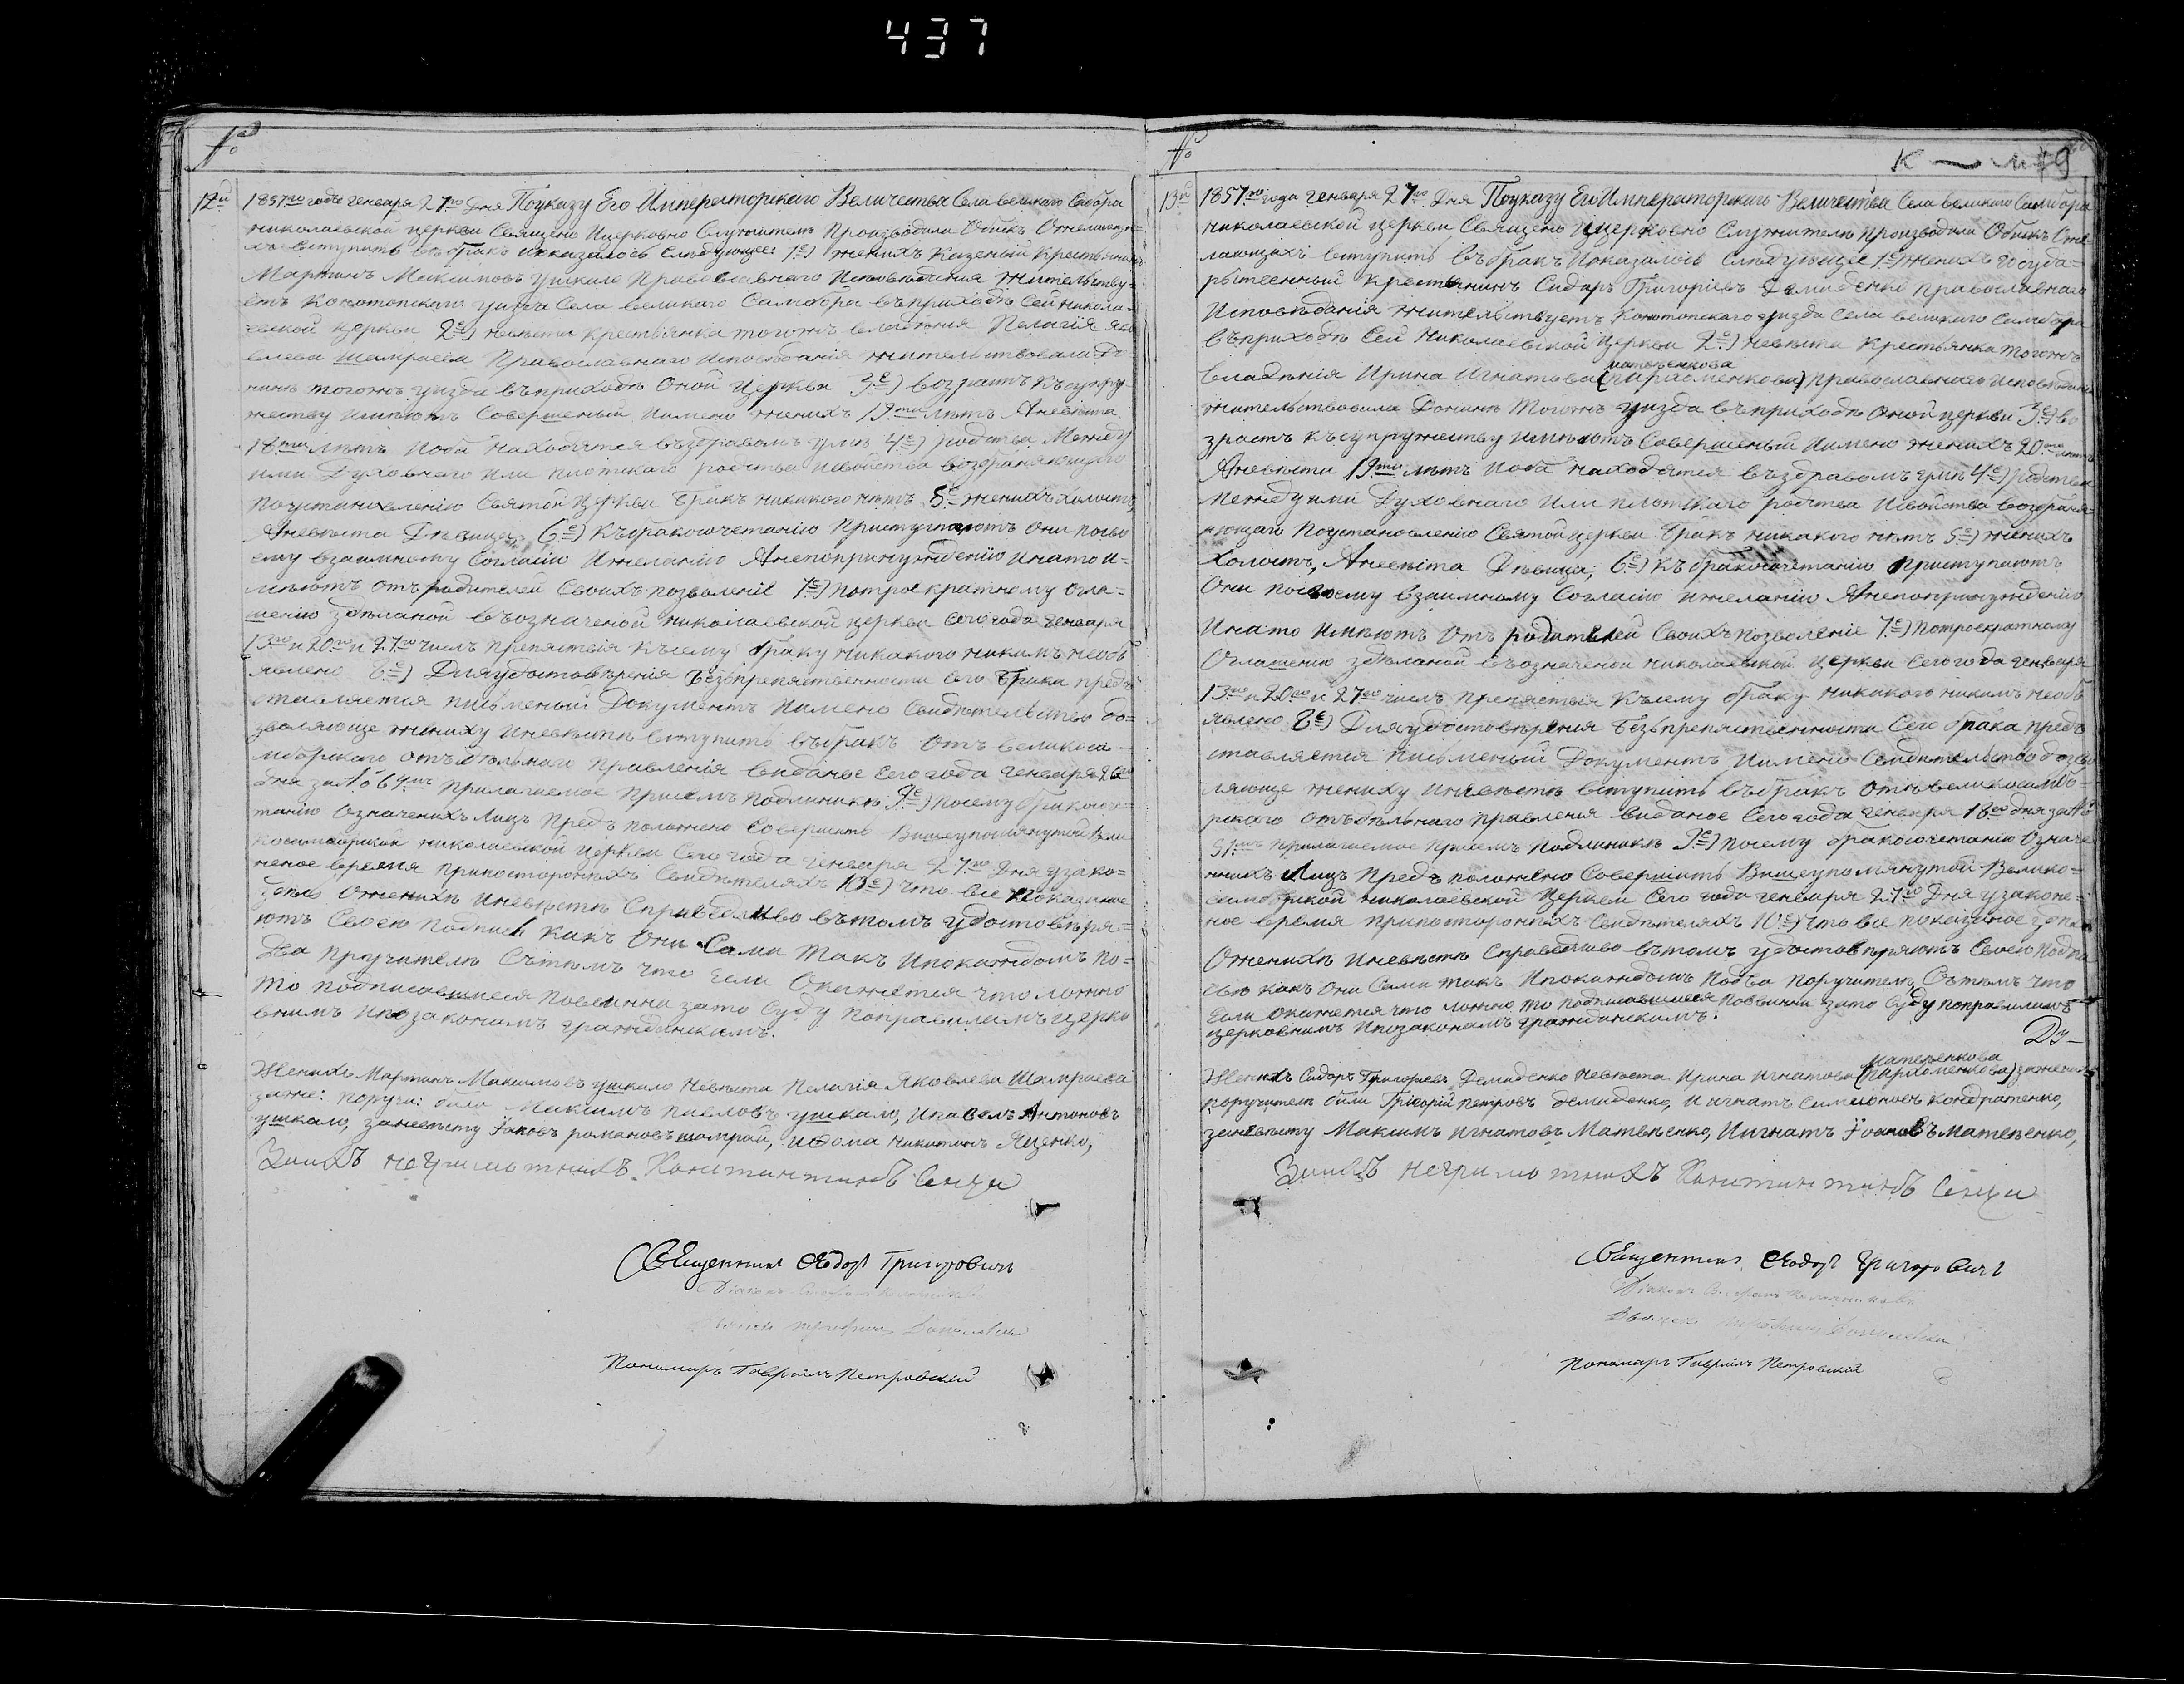 437
№
12й
1857го года Генваря 27го Дня По указу Его Императорского Величества Села великаго Самбора
николаевской церкви Священо И церковно Служители Производили Обыскъ О желающи-
хъ вступить въ бракъ и оказалось Следующее: 1е) женихъ Казеный Крестьянинъ
Мартинъ Максимовъ Ушкало Православнаго Исповѣдания жительству-
етъ Конотопскаго уизда Села великаго Самбора въ приходѣ Сей никола-
евской церкви 2е) невѣста крестьянка тогожъ владѣния Пелагія Яко
влева Шамраева Православнаго Исповѣданія жительствовала До
нинѣ тогожъ уизда въ приходѣ Оной Церкви 3е) возрастъ Къ супру-
жеству имѣютъ Совершеный Имено женихъ 19ти лѣтъ А невѣста
18ти лѣтъ И оба находятся въ здравомъ умѣ 4е) родства Между
ими Духовнаго Или плотскаго родства И свойства возбраняющаго
По установлению Святой Церкви бракъ никакого нѣтъ 5е женихъ холостъ,
А невѣста Дѣвица, 6е) Къ бракосочетанию Приступаютъ Они по сво
ему взаимному Согласию И желанию А не по принуждению И на то и-
мѣютъ отъ родителей Своихъ позволеніе 7е) По троекратному огла-
шению зделаной въ означеной николаевской церкви Сего года Генваря
13го и 20го и 27го числъ Препятсвия Къ сему браку никакого никимъ необъ
явлено 8е) Для удостовѣрения безпрепятственности сего брака пред-
ставляется писменый Документъ Имено Свидѣтельство до-
зволяюще жениху И невѣсте вступить въ бракъ отъ великоса-
мборского отъдѣльнаго правления виданое Сего года Генваря 26го
дня за № 64мъ Прилагаемое При семъ подлиникѣ 9е) По сему бракосоче-
танию Означенихъ Лицъ Предъ положено Совершить Вишеупомянутой Вели
косамборской николаевской церкви Сего года Генваря 27го Дня узако-
неное время При посторонихъ Свидѣтеляхъ 10е) Что все показаное
здесь О женихѣ И невѣсте Справедливо въ томъ удостовѣря-
ютъ Своею подпись какъ Они Сами такъ И по каждомъ по
Два Пручителя Съ тѣмъ что Если Окажется что ложно
то подписавшиеся повинни за то Суду По правиламъ церко
внимъ И по законамъ гражданскимъ.
Женихъ Мартинъ Максимовъ ушкало Невѣста Пелагія Яковлева Шамраева
зажен: поручи: били Максимъ павловъ ушкало, И павелъ Антоновъ
ушкало, за невѣсту Iаковъ романовъ шамрай, и фома никитинъ Яценко,
За нихъ неграмотнихъ Константинъ Сенча
Священникъ Ѳеодоръ Григоровичъ
Пономаръ Гаврiилъ Петровский
№
13й
1857го года Генваря 27го Дня По указу Его Императорскаго Величества Села великаго Самбора
Николаевской церкви Священо И церковно Служители Производили Обыскъ О же-
лающихъ вступить въ бракъ И оказалось Слѣдующее 1е) женихъ Госуда-
рственный Крестьянинъ Сидаръ Григоріевъ Демиденко Православнаго
Исповѣданія жительствуетъ Конотопскаго уизда Села великаго Самбора
въ приходѣ Сей Николаевской Церкви 2е) Невѣста Крестьянка тогожъ
матвѣенкова
владѣнія Ирина Игнатова (пархоменкова) Православнаго Исповѣданія
жительствовала Донинѣ Тогожъ уизда въ приходѣ Оной церкви 3е) во
зрастъ Къ супружеству имѣютъ Совершеный Имено женихъ 20ти лѣтъ
А невѣста 19ти лѣтъ И оба находятся въ здравомъ умѣ 4е) родства
Между ими Духовнаго Или плотскаго родства И свойства возбраня-
ющаго По установлению Святой церкви бракъ никакого нѣтъ 5е) женихъ
Холостъ, А невѣста Дѣвица, 6е) Къ бракосочетанию Приступаютъ
Они по своему взаимному Согласию И желанию А не по принуждению
И на то Имѣютъ Отъ родителей Своихъ позволеніе 7е) По троекратному
Оглашению зделаной въ означеной николаевской церкви Сего года Генваря
13го и 20го и 27го числъ Препятсвия Къ сему браку никакого никимъ необъ
явлено 8е) Для удостовѣрения безъпрепятственности Сего брака предъ
ставляется писменый Документъ Имено Свидѣтельство дозво
ляюще жениху И невѣсте вступить въ бракъ отъ великосамбо-
рскаго отъдѣльнаго правления виданое Сего года Генваря 18го дня за №
51мъ Прилагаемое При семъ подлиникѣ 9е) По сему бракосочетанию Означе
нихъ Лицъ Предъ положено Совершить Вишеупомянутой Велико-
самборской николаевской Церкви Сего года Генваря 27го Дня узаконе-
ное время При постороннихъ Свидѣтеляхъ 10е) Что все показаное здесь
О женихѣ И невѣсте Справедливо въ томъ удостовѣряютъ Своею Подпи
сью какъ Они Сами такъ И по каждомъ По два поручителя Съ тѣмъ что
Если окажется что ложно то подписавшиеся повинни за то Суду по правиламъ
церковнимъ И по законамъ Гражданскимъ.
матвѣенкова
Женихъ Сидоръ Григорьевъ Демиденко Невѣста Ирина Игнатова (пархоменкова) за жениха
поручители били Григорій Петровъ Демиденко, И игнатъ Симионовъ Кондратенко,
за невѣсту Максимъ Игнатовъ Матвѣенко, И игнатъ Iоановъ матвѣенко,
За нихъ неграмотнихъ Константинъ Сенча
Священникъ Ѳеодоръ Григоровичъ
Пономаръ Гаврiилъ Петровскій